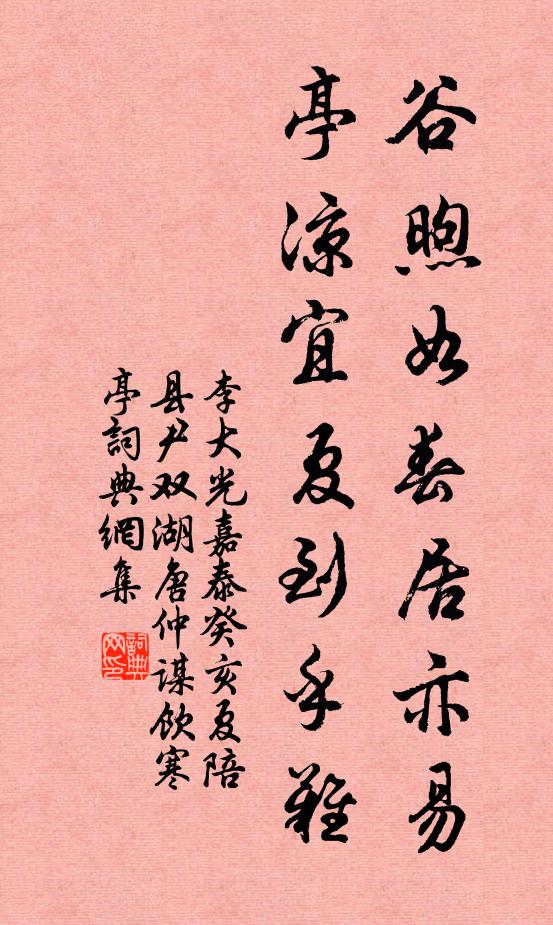 谷煦如春居亦易
亭凉宜夏到手難
李大光嘉泰癸亥夏陪
县尹双湖唐仲谋饮寒
亭詞典網集
詞典网印